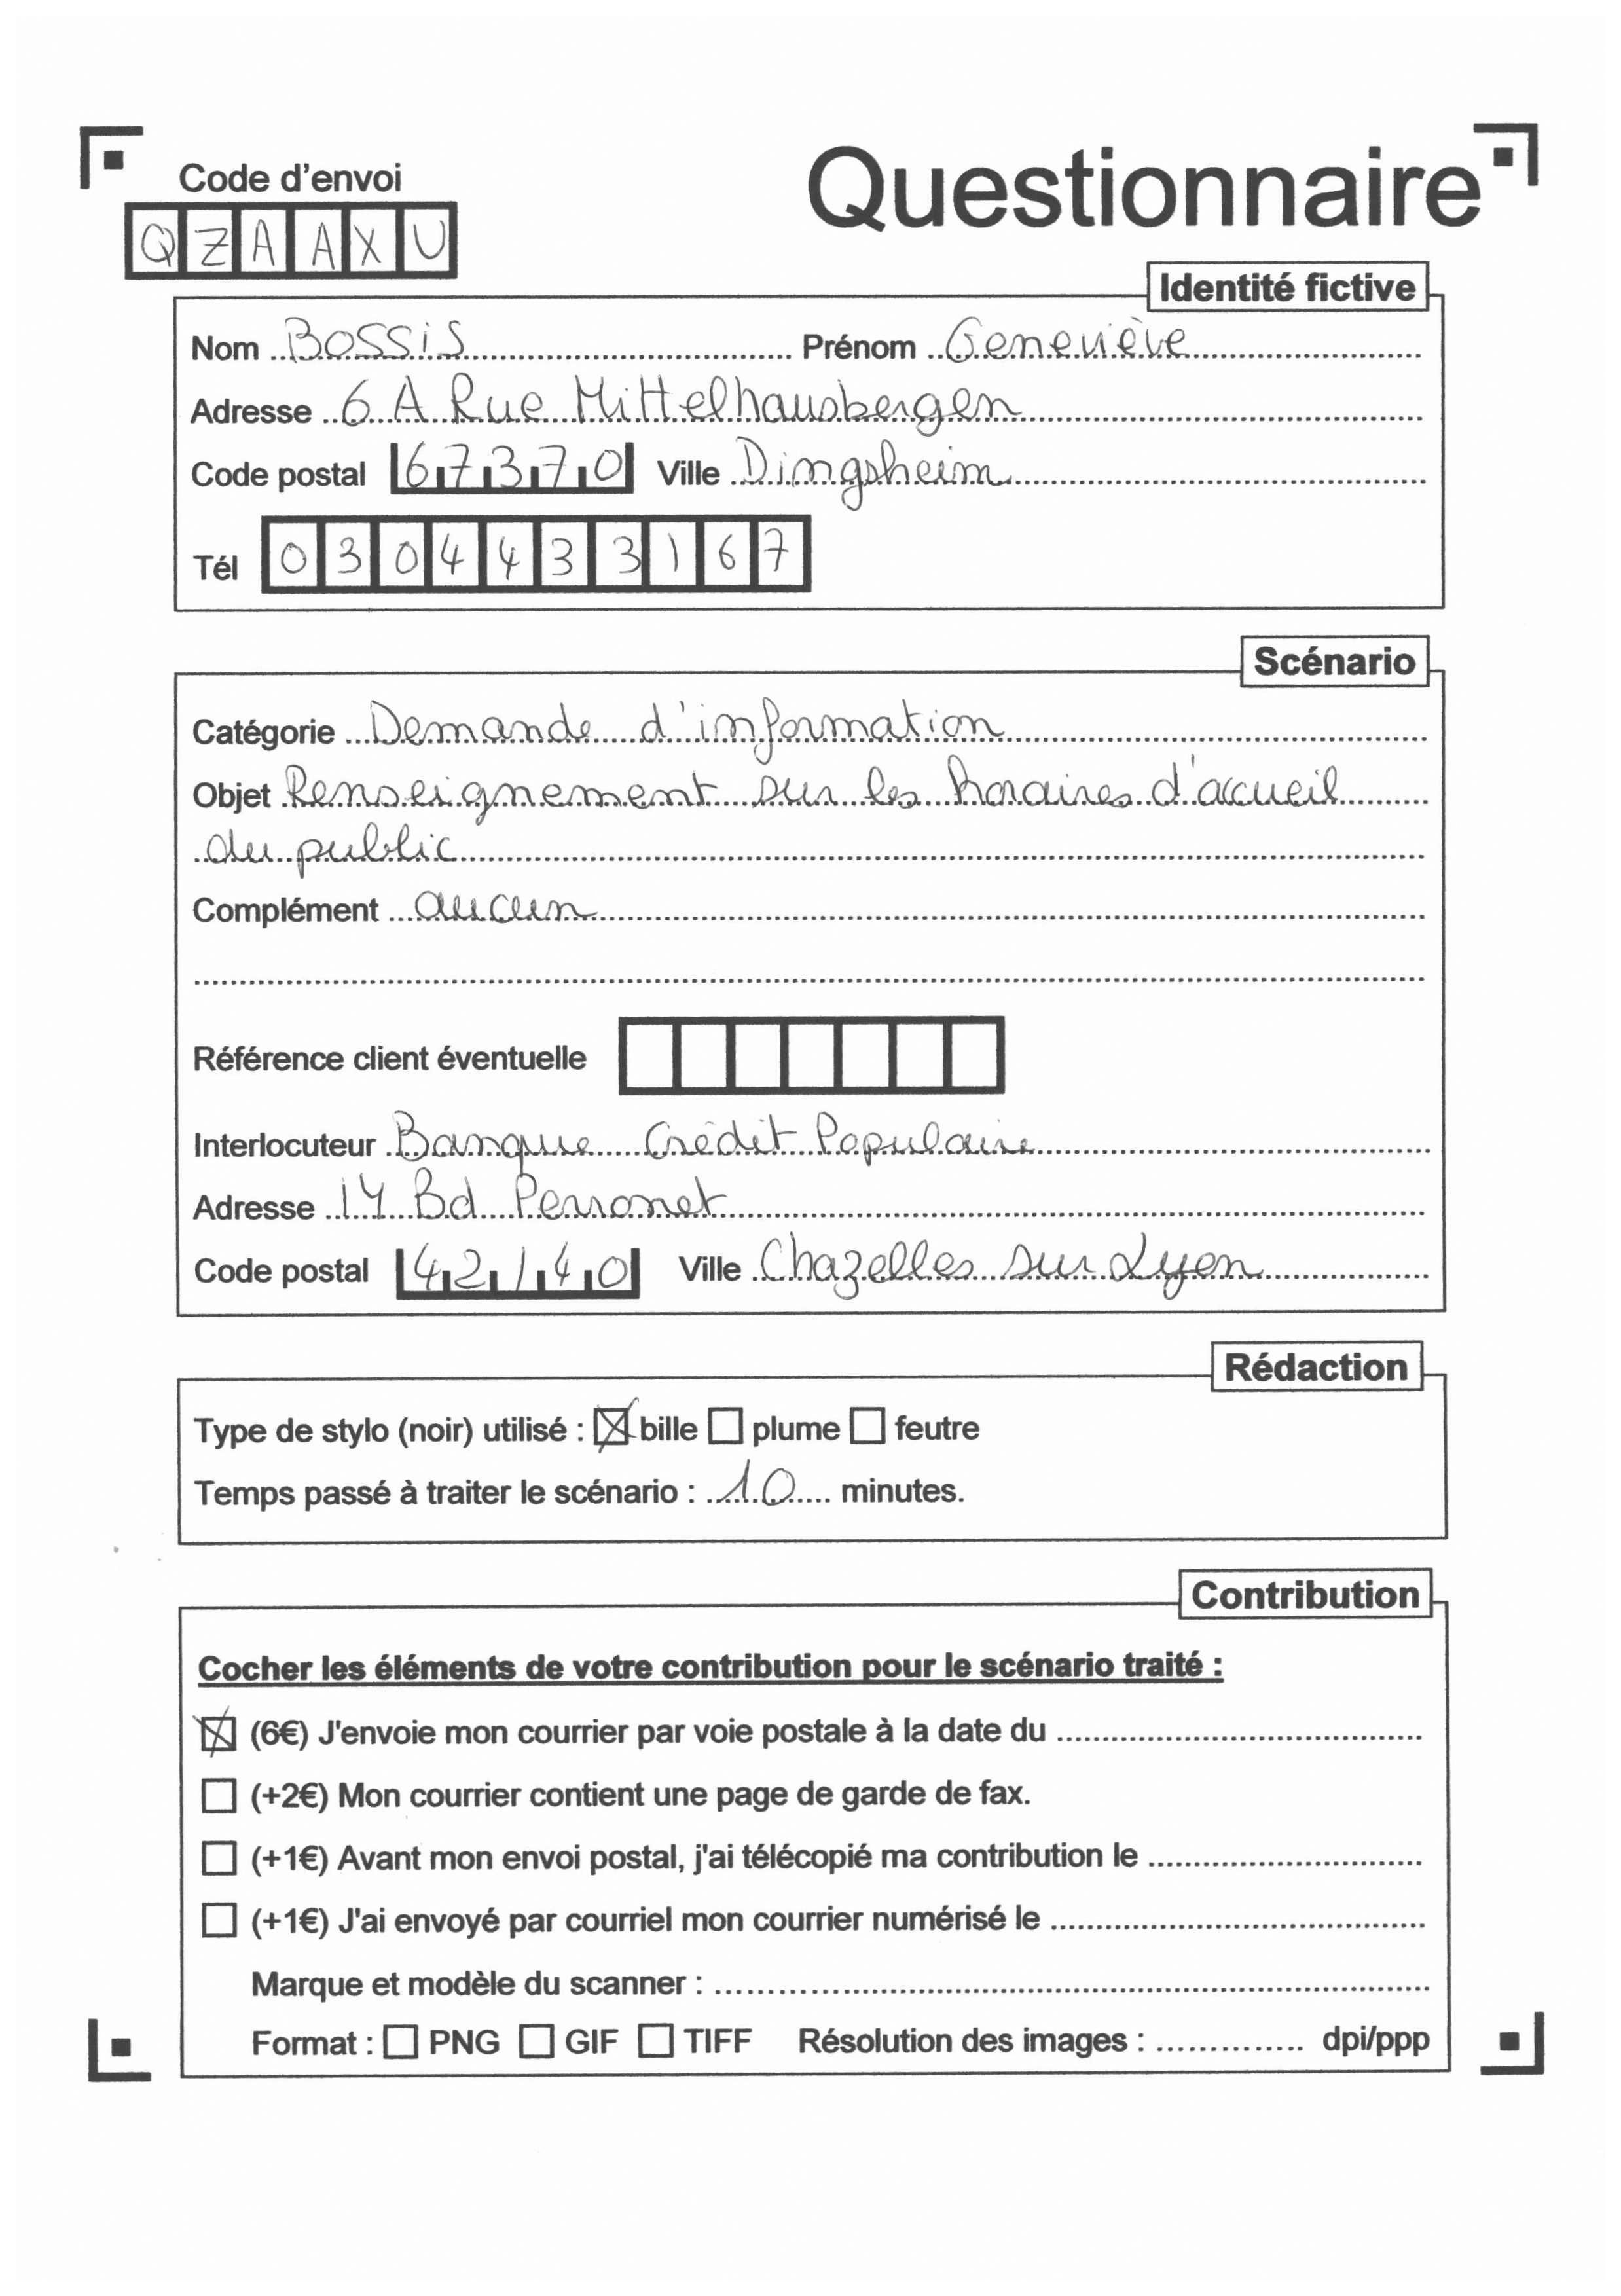 Code d'envoi
Questionnaire
QZAAXU
Identité fictive
Nom BOSSiS Prénom Geneviève
Adresse 6 A Rue Mittelhausbergen
Code postal 67370 Ville Dingsheim
Tél 0304433167
Scénario
Catégorie Demande d'information
Objet Renseignement sur les horaires d'accueil
du public
Complément aucun
Référence client éventuelle
Interlocuteur Banque Crédit Populaire
Adresse 14 Bd Perronet
Code postal 42140 Ville Chazelles sur Lyon
Rédaction
Type de stylo (noir) utilisé : ☒ bille ☐ plume ☐ feutre
Temps passé à traiter le scénario : 10 minutes.
Contribution
Cocher les éléments de votre contribution pour le scénario traité :
☒ (6€) J'envoie mon courrier par voie postale à la date du
☐ (+2€) Mon courrier contient une page de garde de fax.
☐ (+1€) Avant mon envoi postal, j'ai télécopié ma contribution le
☐ (+1€) J'ai envoyé par courriel mon courrier numérisé le
Marque et modèle du scanner :
Format : ☐ PNG ☐ GIF ☐ TIFF Résolution des images : dpi/ppp